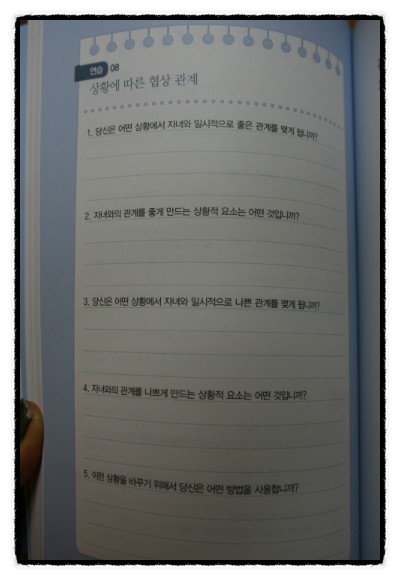 연습 08
상황에 따른 협상 관계
1. 당신은 어떤 상황에서 자녀와 일시적으로 좋은 관계를 맺게 됩니까?
2. 자녀와의 관계를 좋게 만드는 상황적 요소는 어떤 것입니까?
3. 당신은 어떤 상황에서 자녀와 일시적으로 나쁜 관계를 맺게 됩니까?
4. 자녀와의 관계를 나쁘게 만드는 상황적 요소는 어떤 것입니까?
5. 이런 상황을 바꾸기 위해서 당신은 어떤 방법을 사용합니까?